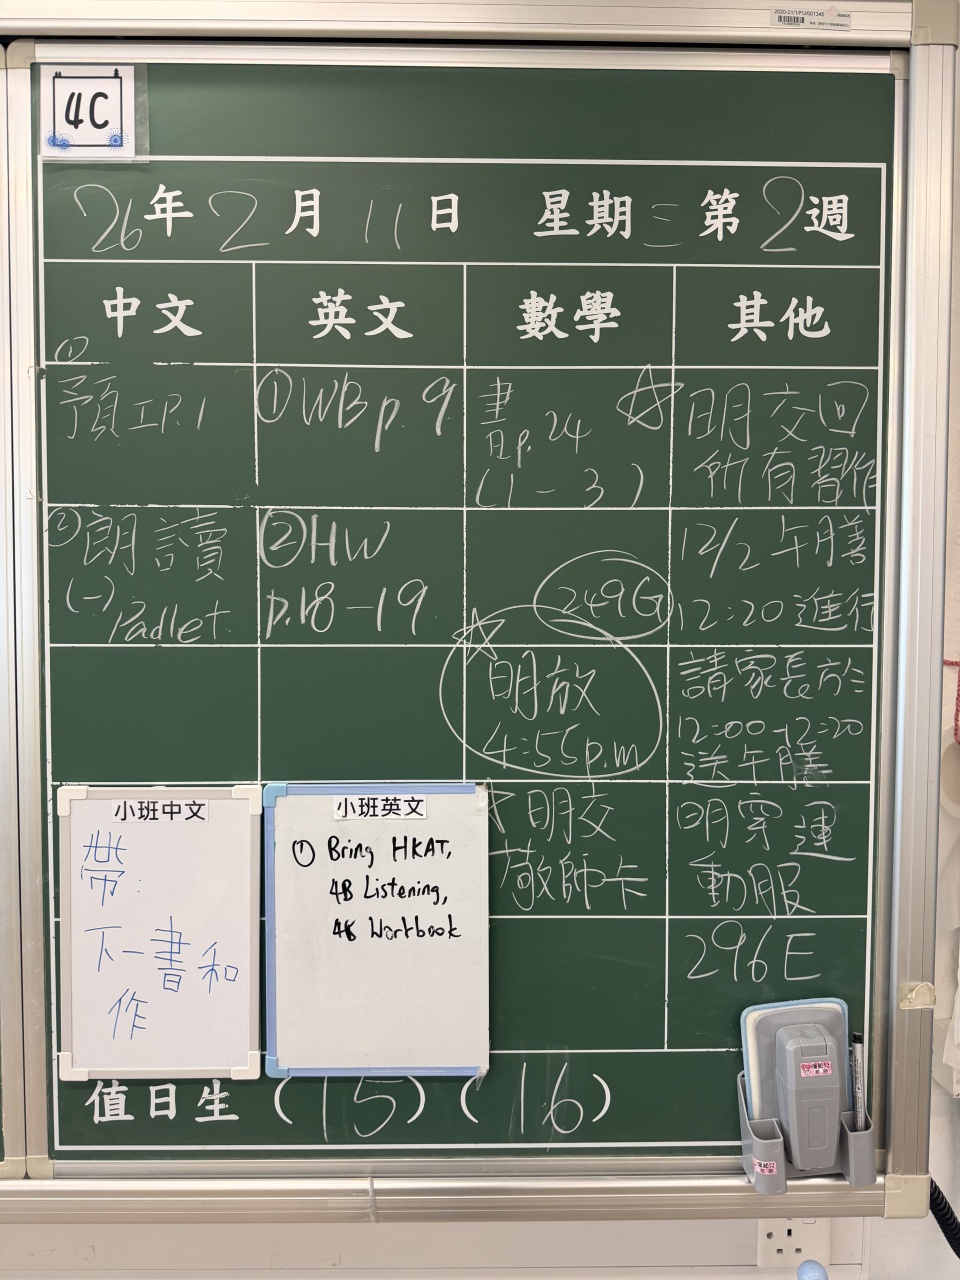 2020-21/1/FU/001345
4C
26年2月11日 星期三 第2週
中文 英文 數學 其他
①
預工P.1
①WB p.9
書p.24
(1-3)
☆明交回
所有習作
②朗讀
(一)
Padlet
②HW
p.18-19
249G
12/2 午膳
12:20進行
☆
明放
4:55p.m
請家長於
12:00-12:20
送午膳
小班中文
帶:
下一書和
作
小班英文
① Bring HKAT,
4B Listening,
4B Workbook
明交
敬師卡
明穿運
動服
296E
值日生(15)(16)